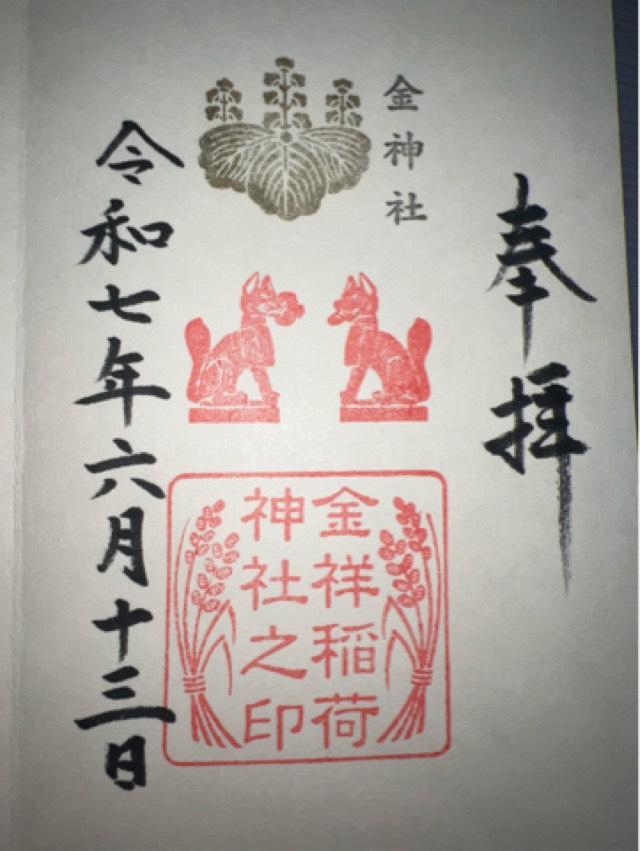 奉拝
金神社
金祥稲荷
神社之印
令和七年六月十三日